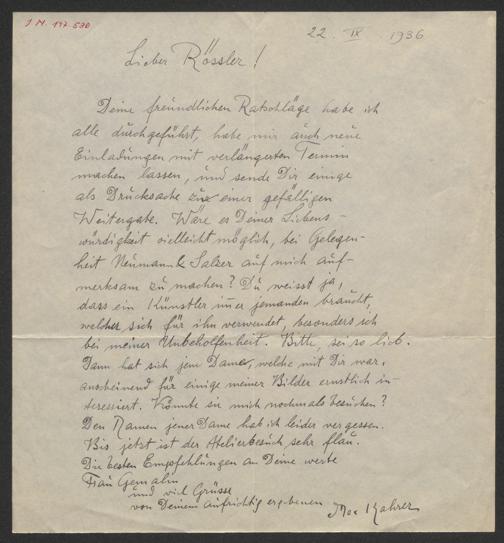 J. N. 147.530
22. IX. 1936
Lieber Rössler!
Deine freundlichen Ratschläge habe ich
alle durchgeführt, habe mir auch neue
Einladungen mit verlängerten Termin
machen lassen, und sende Dir einige
als Drucksache zur einer gefälligen
Weitergabe. Wäre es Deiner Liebens-
würdigkeit vielleicht möglich, bei Gelegen-
heit Neumann & Salzer auf mich auf-
merksam zu machen? Du weisst ja,
dass ein Künstler immer jemanden braucht,
welcher sich für ihn verwendet, besonders ich
bei meiner Unbeholfenheit. Bitte, sei so lieb.
Dann hat sich jene Dame, welche mit Dir war,
anscheinend für einige meiner Bilder ernstlich in-
teressiert. Könnte sie mich nochmals besuchen?
Den Namen jener Dame hab ich leider vergessen.
Bis jetzt ist der Atelierbesuch sehr flau.
Die besten Empfehlungen an Deine werte
Frau Gemalin
und viel Grüsse
von Deinem aufrichtig ergebenen Max Kahrer